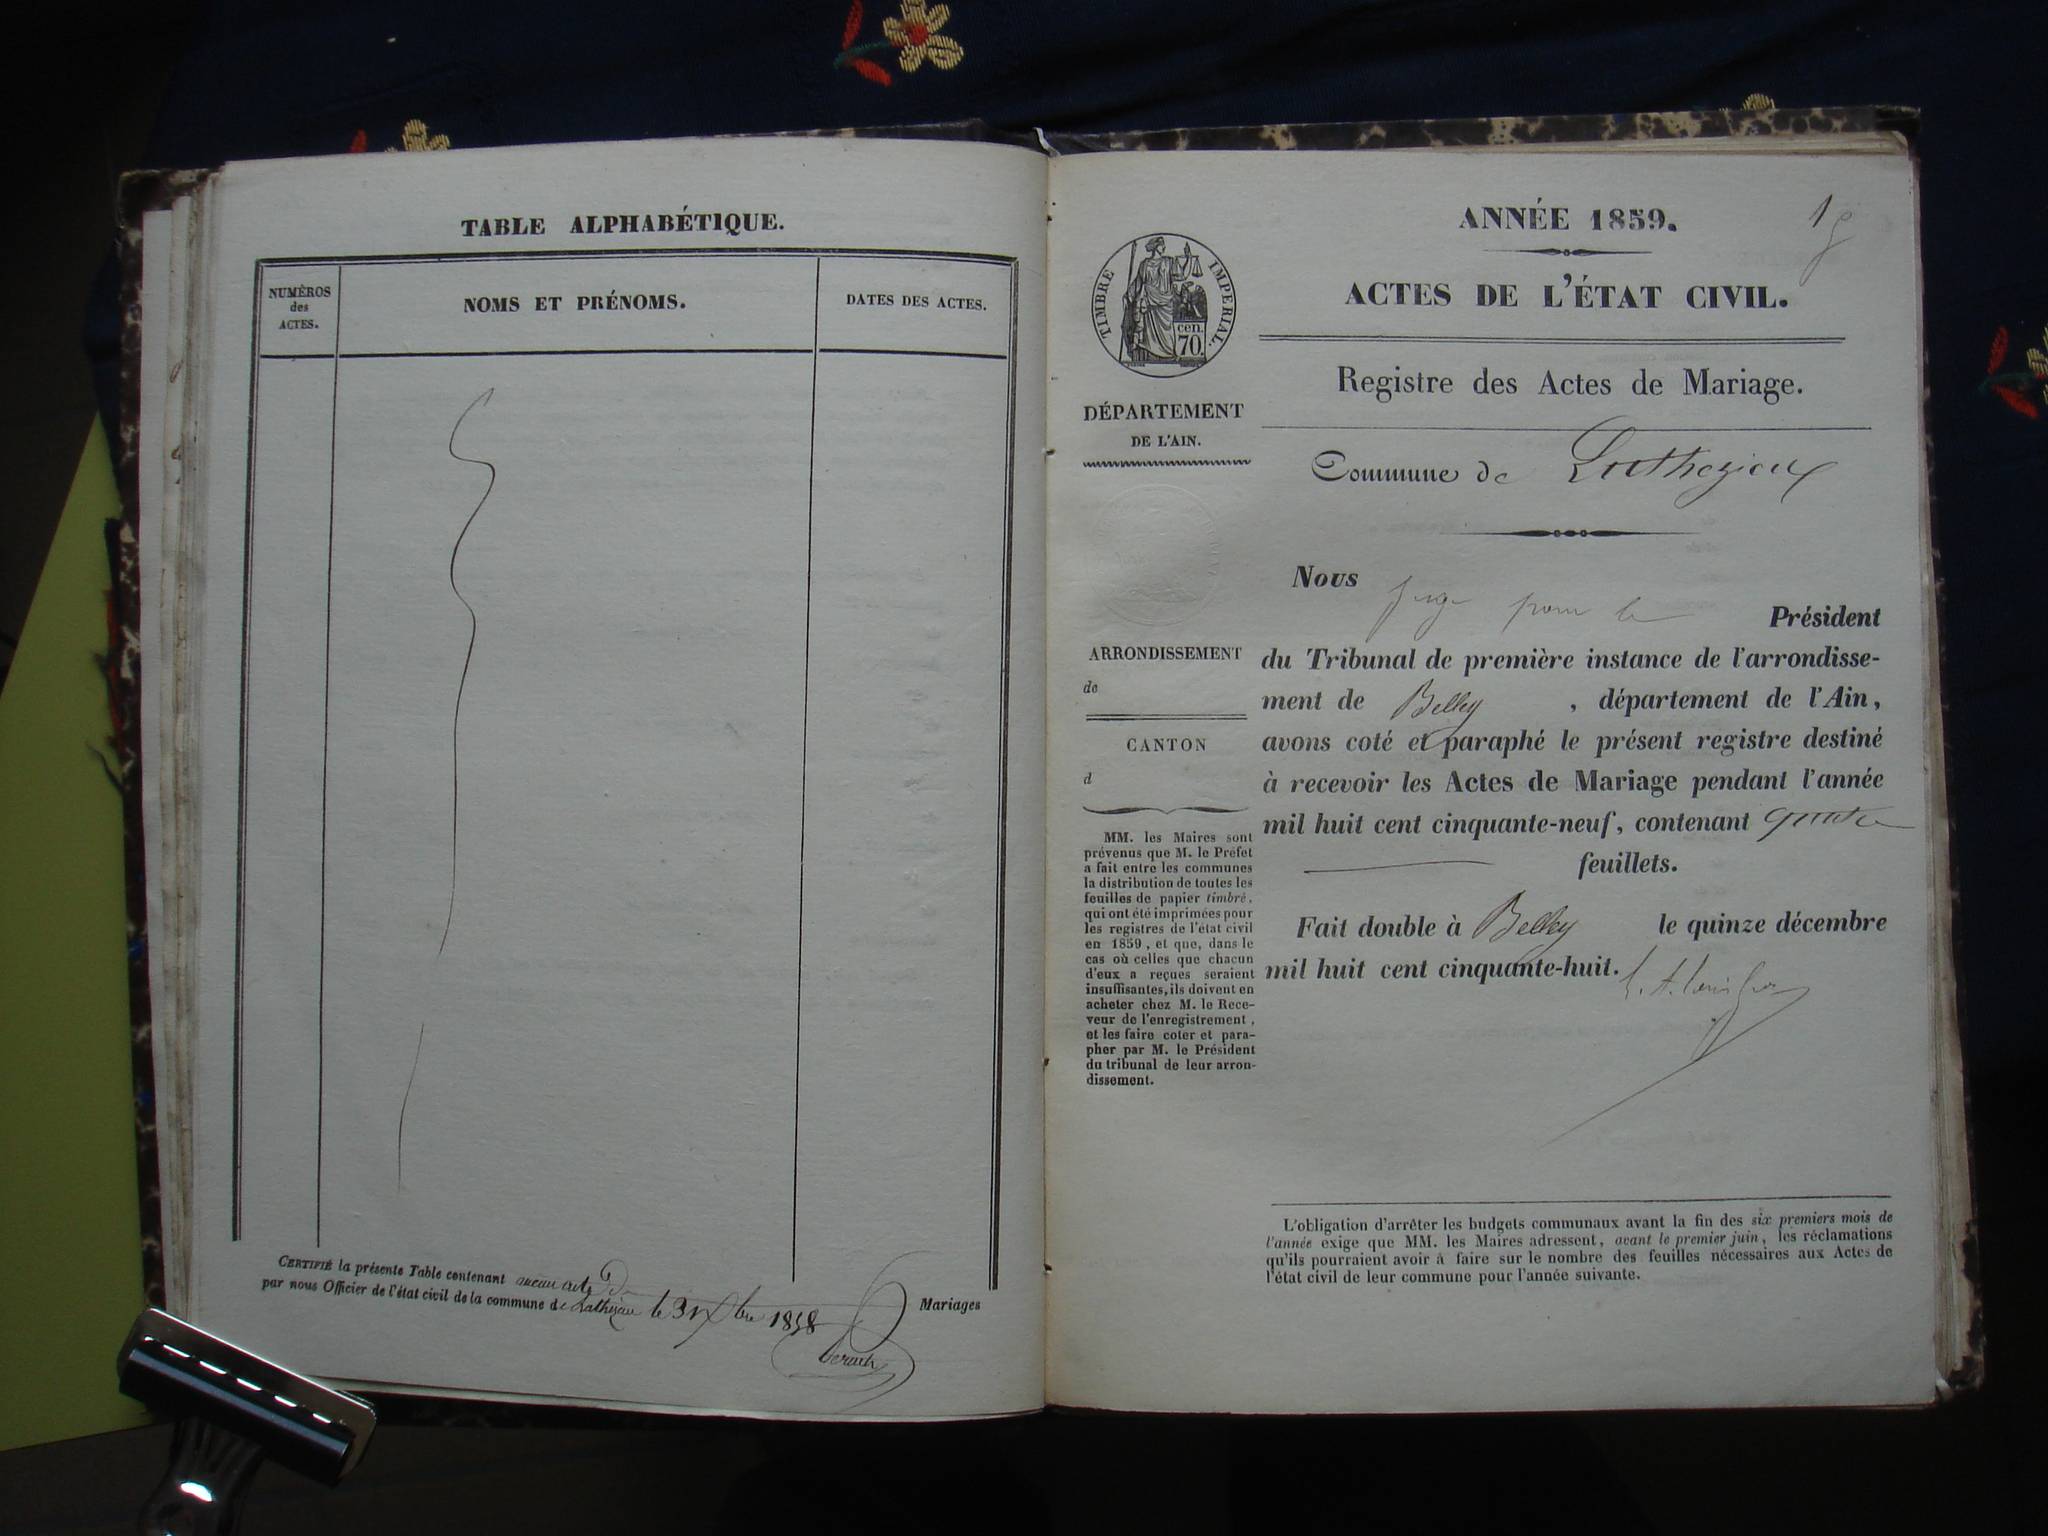 TABLE ALPHABÉTIQUE.
NUMÉROS
des
ACTES.
NOMS ET PRÉNOMS.
DATES DES ACTES.
CERTIFIÉ la présente Table contenant aucun acte De Mariages
par nous Officier de l'état civil de la commune de Luthezieu le 31 Xbre 1858
ANNÉE 1859.
1
ACTES DE L'ÉTAT CIVIL.
TIMBRE IMPERIAL.
cen.
70.
Registre des Actes de Mariage.
DÉPARTEMENT
DE L'AIN.
Commune de Luthezieu
ARRONDISSEMENT
de
CANTON
d
MM. les Maires sont
prévenus que M. le Préfet
a fait entre les communes
la distribution de toutes les
feuilles de papier timbré,
qui ont été imprimées pour
les registres de l'état civil
en 1859, et que, dans le
cas où celles que chacun
d'eux a reçues seraient
insuffisantes, ils doivent en
acheter chez M. le Rece-
veur de l'enregistrement,
et les faire coter et para-
pher par M. le Président
du tribunal de leur arron-
dissement.
Nous juge pour le Président
du Tribunal de première instance de l'arrondisse-
ment de Belley , département de l'Ain,
avons coté et paraphé le présent registre destiné
à recevoir les Actes de Mariage pendant l'année
mil huit cent cinquante-neuf, contenant quatre
feuillets.
Fait double à Belley le quinze décembre
mil huit cent cinquante-huit.
L'obligation d'arrêter les budgets communaux avant la fin des six premiers mois de
l'année exige que MM. les Maires adressent, avant le premier juin, les réclamations
qu'ils pourraient avoir à faire sur le nombre des feuilles nécessaires aux Actes de
l'état civil de leur commune pour l'année suivante.